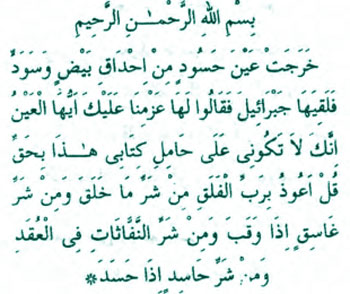 بِسْمِ اللهِ الرَّحْمٰـنِ الرَّحِيْمِ
خَرَجَتْ عَيْنَ حَسُودٍ مِنْ اِحْدَاقِ بَيْضٍ وَسَوَدٌ
فَلَقِيَهَا جَبْرَائِيلَ فَقَالُوا لَهَا عَزَمْنَا عَلَيْكَ اَيُّهَا الْعَيْنُ
اِنَّكَ لاَ تَكُونِى عَلَى حَامِلِ كِتَابِى هٰـذَا بِحَقِّ
قُلْ اَعُوذُ بِرَبِّ الْفَلَقِ مِنْ شَرِّ مَا خَلَقَ وَمِنْ شَرِّ
غَاسِقٍ اِذَا وَقَبَ وَمِنْ شَرِّ النَّفَّاثَاتِ فِى الْعُقَدِ
وَمِنْ شَرِّ حَاسِدٍ اِذَا حَسَدَ*